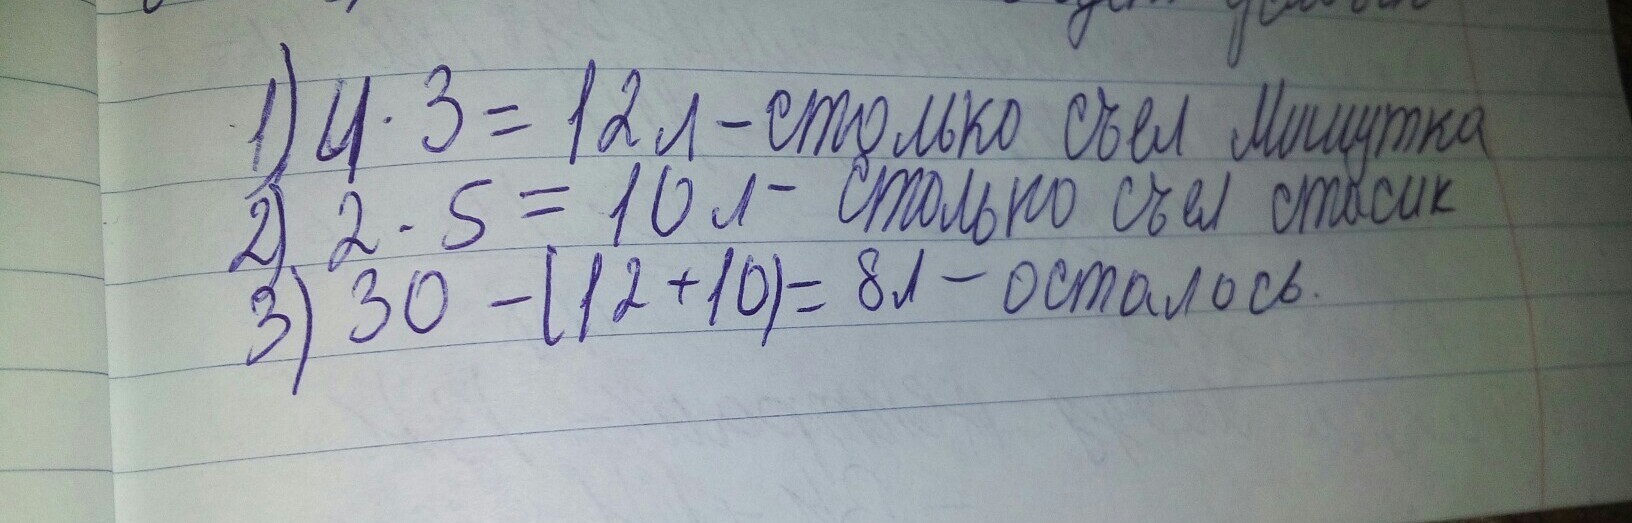 1) 4 · 3 = 12 л - столько съел Мишутка
2) 2 · 5 = 10 л - столько съел стасик
3) 30 - (12 + 10) = 8 л - осталось.